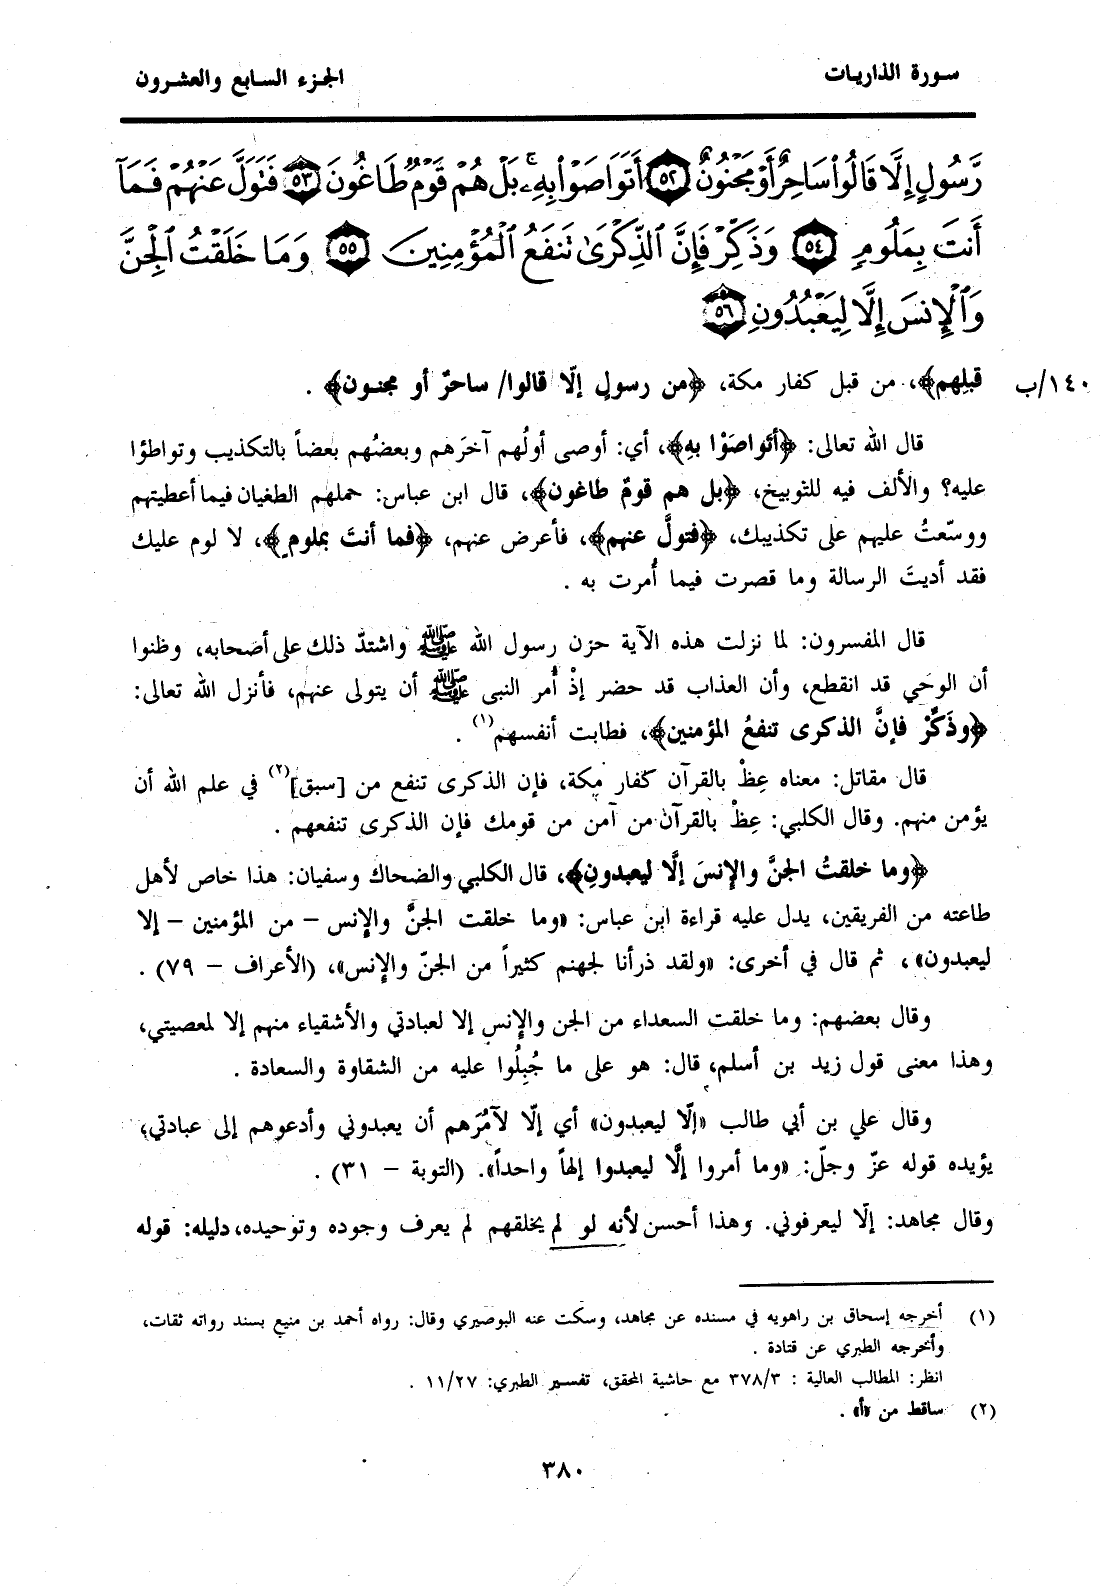 سورة الذاريات
الجزء السابع والعشرون
رَّسُولٍ إِلَّا قَالُوا۟ سَاحِرٌ أَوْ مَجْنُونٌ ٥٢ أَتَوَاصَوْا۟ بِهِۦ ۚ بَلْ هُمْ قَوْمٌ طَاغُونَ ٥٣ فَتَوَلَّ عَنْهُمْ فَمَآ
أَنتَ بِمَلُومٍ ٥٤ وَذَكِّرْ فَإِنَّ ٱلذِّكْرَىٰ تَنفَعُ ٱلْمُؤْمِنِينَ ٥٥ وَمَا خَلَقْتُ ٱلْجِنَّ
وَٱلْإِنسَ إِلَّا لِيَعْبُدُونِ ٥٦
١٤٠/ب
قبلِهم﴾، من قبل كفار مكة، ﴿من رسولٍ إلّا قالوا/ ساحرٌ أو مجنون﴾ .
قال الله تعالى: ﴿أتواصَوْا بهِ﴾، أي: أوصى أولُهم آخرَهم وبعضُهم بعضاً بالتكذيب وتواطؤا
عليه؟ والألف فيه للتوبيخ، ﴿بل هم قومٌ طاغون﴾، قال ابن عباس: حملهم الطغيان فيما أعطيتهم
ووسّعتُ عليهم على تكذيبك، ﴿فتولَّ عنهم﴾، فأعرض عنهم، ﴿فما أنتَ بملومٍ﴾، لا لوم عليك
فقد أديتَ الرسالة وما قصرت فيما أُمرت به .
قال المفسرون: لما نزلت هذه الآية حزن رسول الله ﷺ واشتدّ ذلك على أصحابه، وظنوا
أن الوحي قد انقطع، وأن العذاب قد حضر إذْ أُمر النبي ﷺ أن يتولى عنهم، فأنزل الله تعالى:
﴿وذَكِّرْ فإنَّ الذكرى تنفعُ المؤمنين﴾، فطابت أنفسهم(١) .
قال مقاتل: معناه عِظْ بالقرآن كفار مكة، فإن الذكرى تنفع من [سبق](٢) في علم الله أن
يؤمن منهم. وقال الكلبي: عِظْ بالقرآن من آمن من قومك فإن الذكرى تنفعهم .
﴿وما خلقتُ الجنَّ والإنسَ إلَّا ليعبدونِ﴾، قال الكلبي والضحاك وسفيان: هذا خاص لأهل
طاعته من الفريقين، يدل عليه قراءة ابن عباس: «وما خلقت الجنَّ والإنس – من المؤمنين – إلا
ليعبدون»، ثم قال في أخرى: «ولقد ذرأنا لجهنم كثيراً من الجنّ والإنس»، (الأعراف – ٧٩) .
وقال بعضهم: وما خلقت السعداء من الجن والإنس إلا لعبادتي والأشقياء منهم إلا لمعصيتي،
وهذا معنى قول زيد بن أسلم، قال: هو على ما جُبِلُوا عليه من الشقاوة والسعادة .
وقال علي بن أبي طالب «إلّا ليعبدون» أي إلّا لآمُرَهم أن يعبدوني وأدعوهم إلى عبادتي؛
يؤيده قوله عزّ وجلّ: «وما أمروا إلَّا ليعبدوا إلهاً واحداً». (التوبة – ٣١) .
وقال مجاهد: إلّا ليعرفوني. وهذا أحسن لأنه لو لم يخلقهم لم يعرف وجوده وتوحيده، دليله: قوله
(١) أخرجه إسحاق بن راهويه في مسنده عن مجاهد، وسكت عنه البوصيري وقال: رواه أحمد بن منيع بسند رواته ثقات،
وأخرجه الطبري عن قتادة .
انظر: المطالب العالية : ٣٧٨/٣ مع حاشية المحقق، تفسير الطبري: ١١/٢٧ .
(٢) ساقط من «أ» .
٣٨٠